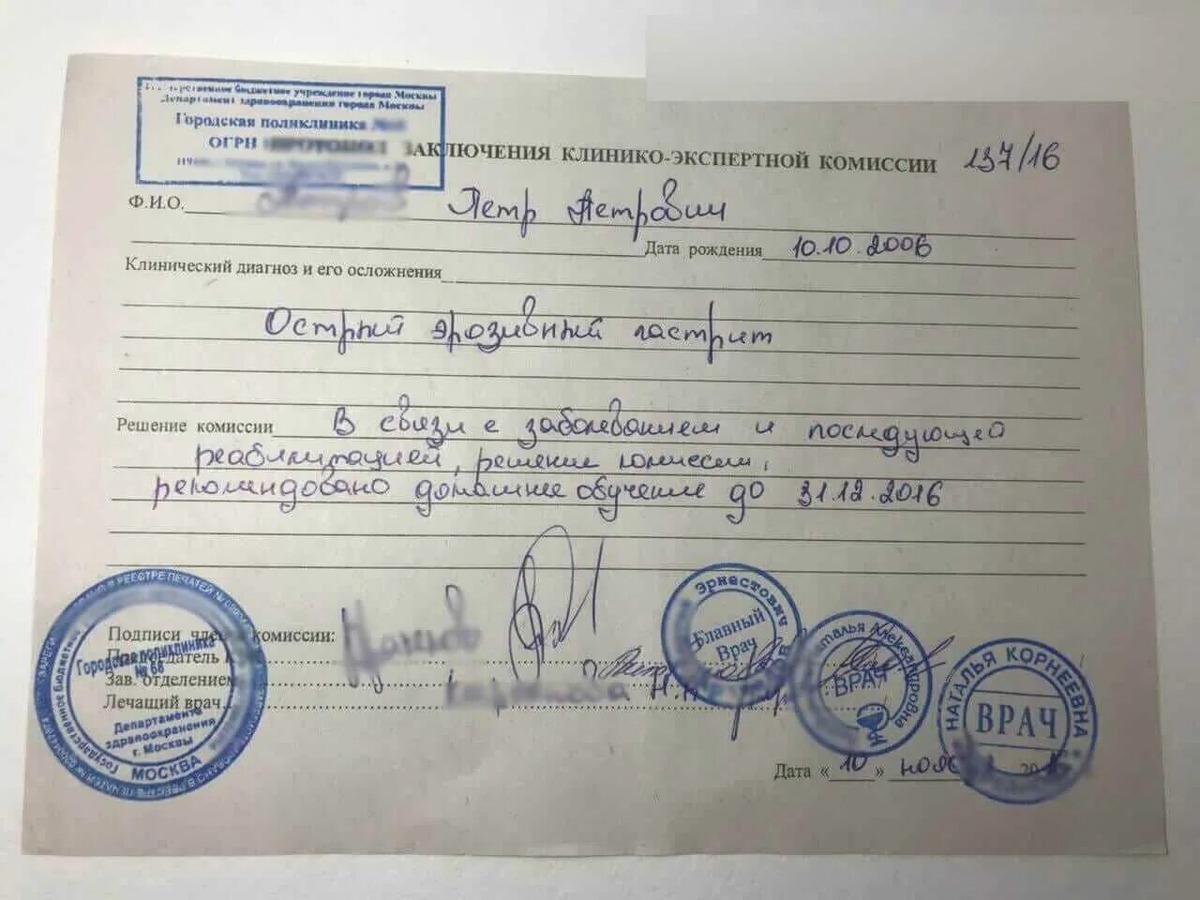 Государственное бюджетное учреждение города Москвы
Департамент здравоохранения города Москвы
Городская поликлиника
ОГРН
ЗАКЛЮЧЕНИЯ КЛИНИКО-ЭКСПЕРТНОЙ КОМИССИИ 137/16
Ф.И.О. Петр Петрович
Дата рождения 10.10.2006
Клинический диагноз и его осложнения
Острый эрозивный гастрит
Решение комиссии В связи с заболеванием и последующей
реабилитацией, решение комиссии,
рекомендовано домашнее обучение до 31.12.2016
Подписи комиссии:
Зав. отделением
Лечащий врач
Городская поликлиника
№ 66
Департамента
здравоохранения
г. Москвы
МОСКВА
Государственное бюджетное
В РЕЕСТРЕ ПЕЧАТЕЙ №
Эрнестович
Главный
Врач
Наталья Александровна
ВРАЧ
НАТАЛЬЯ КОРНЕЕВНА
ВРАЧ
Дата «10»